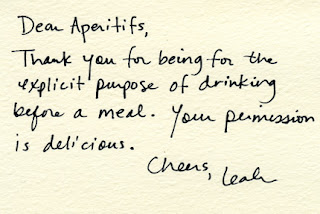 Dear Aperitifs,
Thank you for being for the
explicit purpose of drinking
before a meal. Your permission
is delicious.
Cheers, Leah